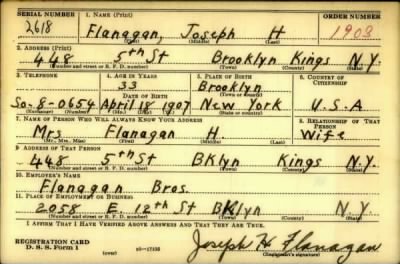 SERIAL NUMBER 1. NAME (Print) ORDER NUMBER
2618 Flanagan, Joseph H 1903
(First) (Middle) (Last)
2. ADDRESS (Print)
448 5th St Brooklyn Kings N.Y.
(Number and street or R. F. D. number) (Town) (County) (State)
3. TELEPHONE 4. AGE IN YEARS 5. PLACE OF BIRTH 6. COUNTRY OF CITIZENSHIP
33 Brooklyn
DATE OF BIRTH (Town or county)
So.-8-0654 April 18 1907 New York U.S.A
(Exchange) (Number) (Mo.) (Day) (Yr.) (State or country)
7. NAME OF PERSON WHO WILL ALWAYS KNOW YOUR ADDRESS 8. RELATIONSHIP OF THAT PERSON
Mrs Flanagan H. Wife
(Mr., Mrs., Miss) (First) (Middle) (Last)
9. ADDRESS OF THAT PERSON
448 5th St BKlyn Kings N.Y.
(Number and street or R. F. D. number) (Town) (County) (State)
10. EMPLOYER'S NAME
Flanagan Bros.
11. PLACE OF EMPLOYMENT OR BUSINESS
2058 E. 12th St BKlyn N.Y.
(Number and street or R. F. D. number) (Town) (County) (State)
I AFFIRM THAT I HAVE VERIFIED ABOVE ANSWERS AND THAT THEY ARE TRUE.
REGISTRATION CARD
D. S. S. Form 1 (over) 16—17105 Joseph H. Flanagan
(Registrant's signature)